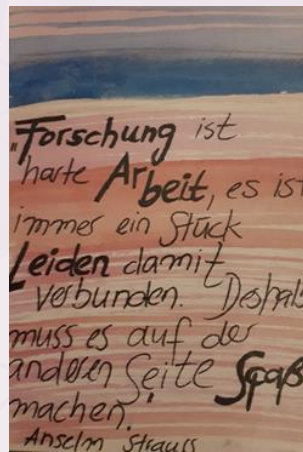 "Forschung ist
harte Arbeit, es ist
immer ein Stück
Leiden damit
verbunden. Deshalb
muss es auf der
anderen Seite Spaß
machen."
Anselm Strauss